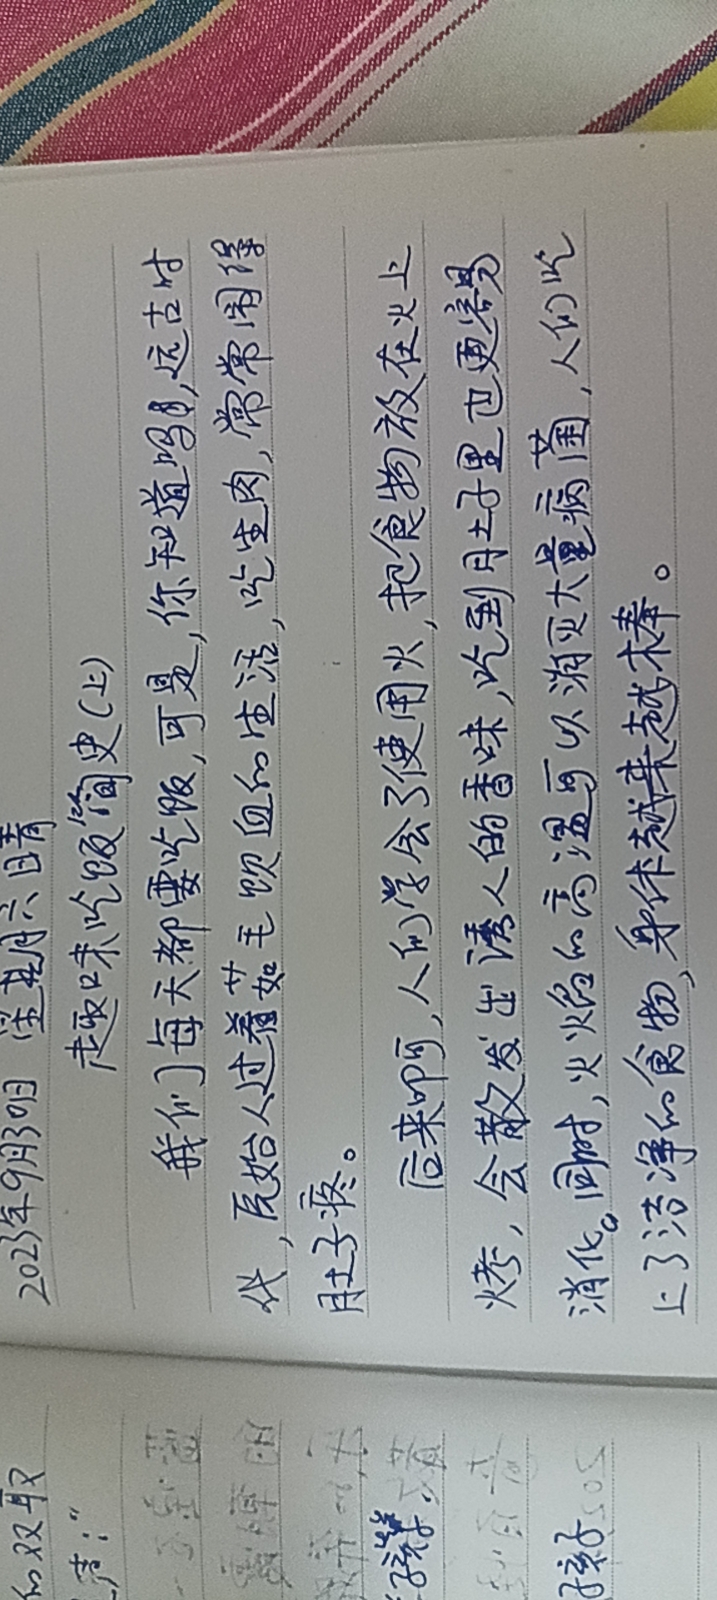 2023年9月30日 星期六 晴
趣味吃饭简史(上)
我们每天都要吃饭,可是,你知道吗,远古时
代,原始人过着茹毛饮血的生活,吃生肉,常常闹得
肚子疼。
后来啊,人们学会了使用火,把食物放在火上
烤,会散发出诱人的香味,吃到肚子里也更容易
消化。同时,火焰的高温可以消灭大量病菌,人们吃
上了洁净的食物,身体越来越棒。
的双取
孩子